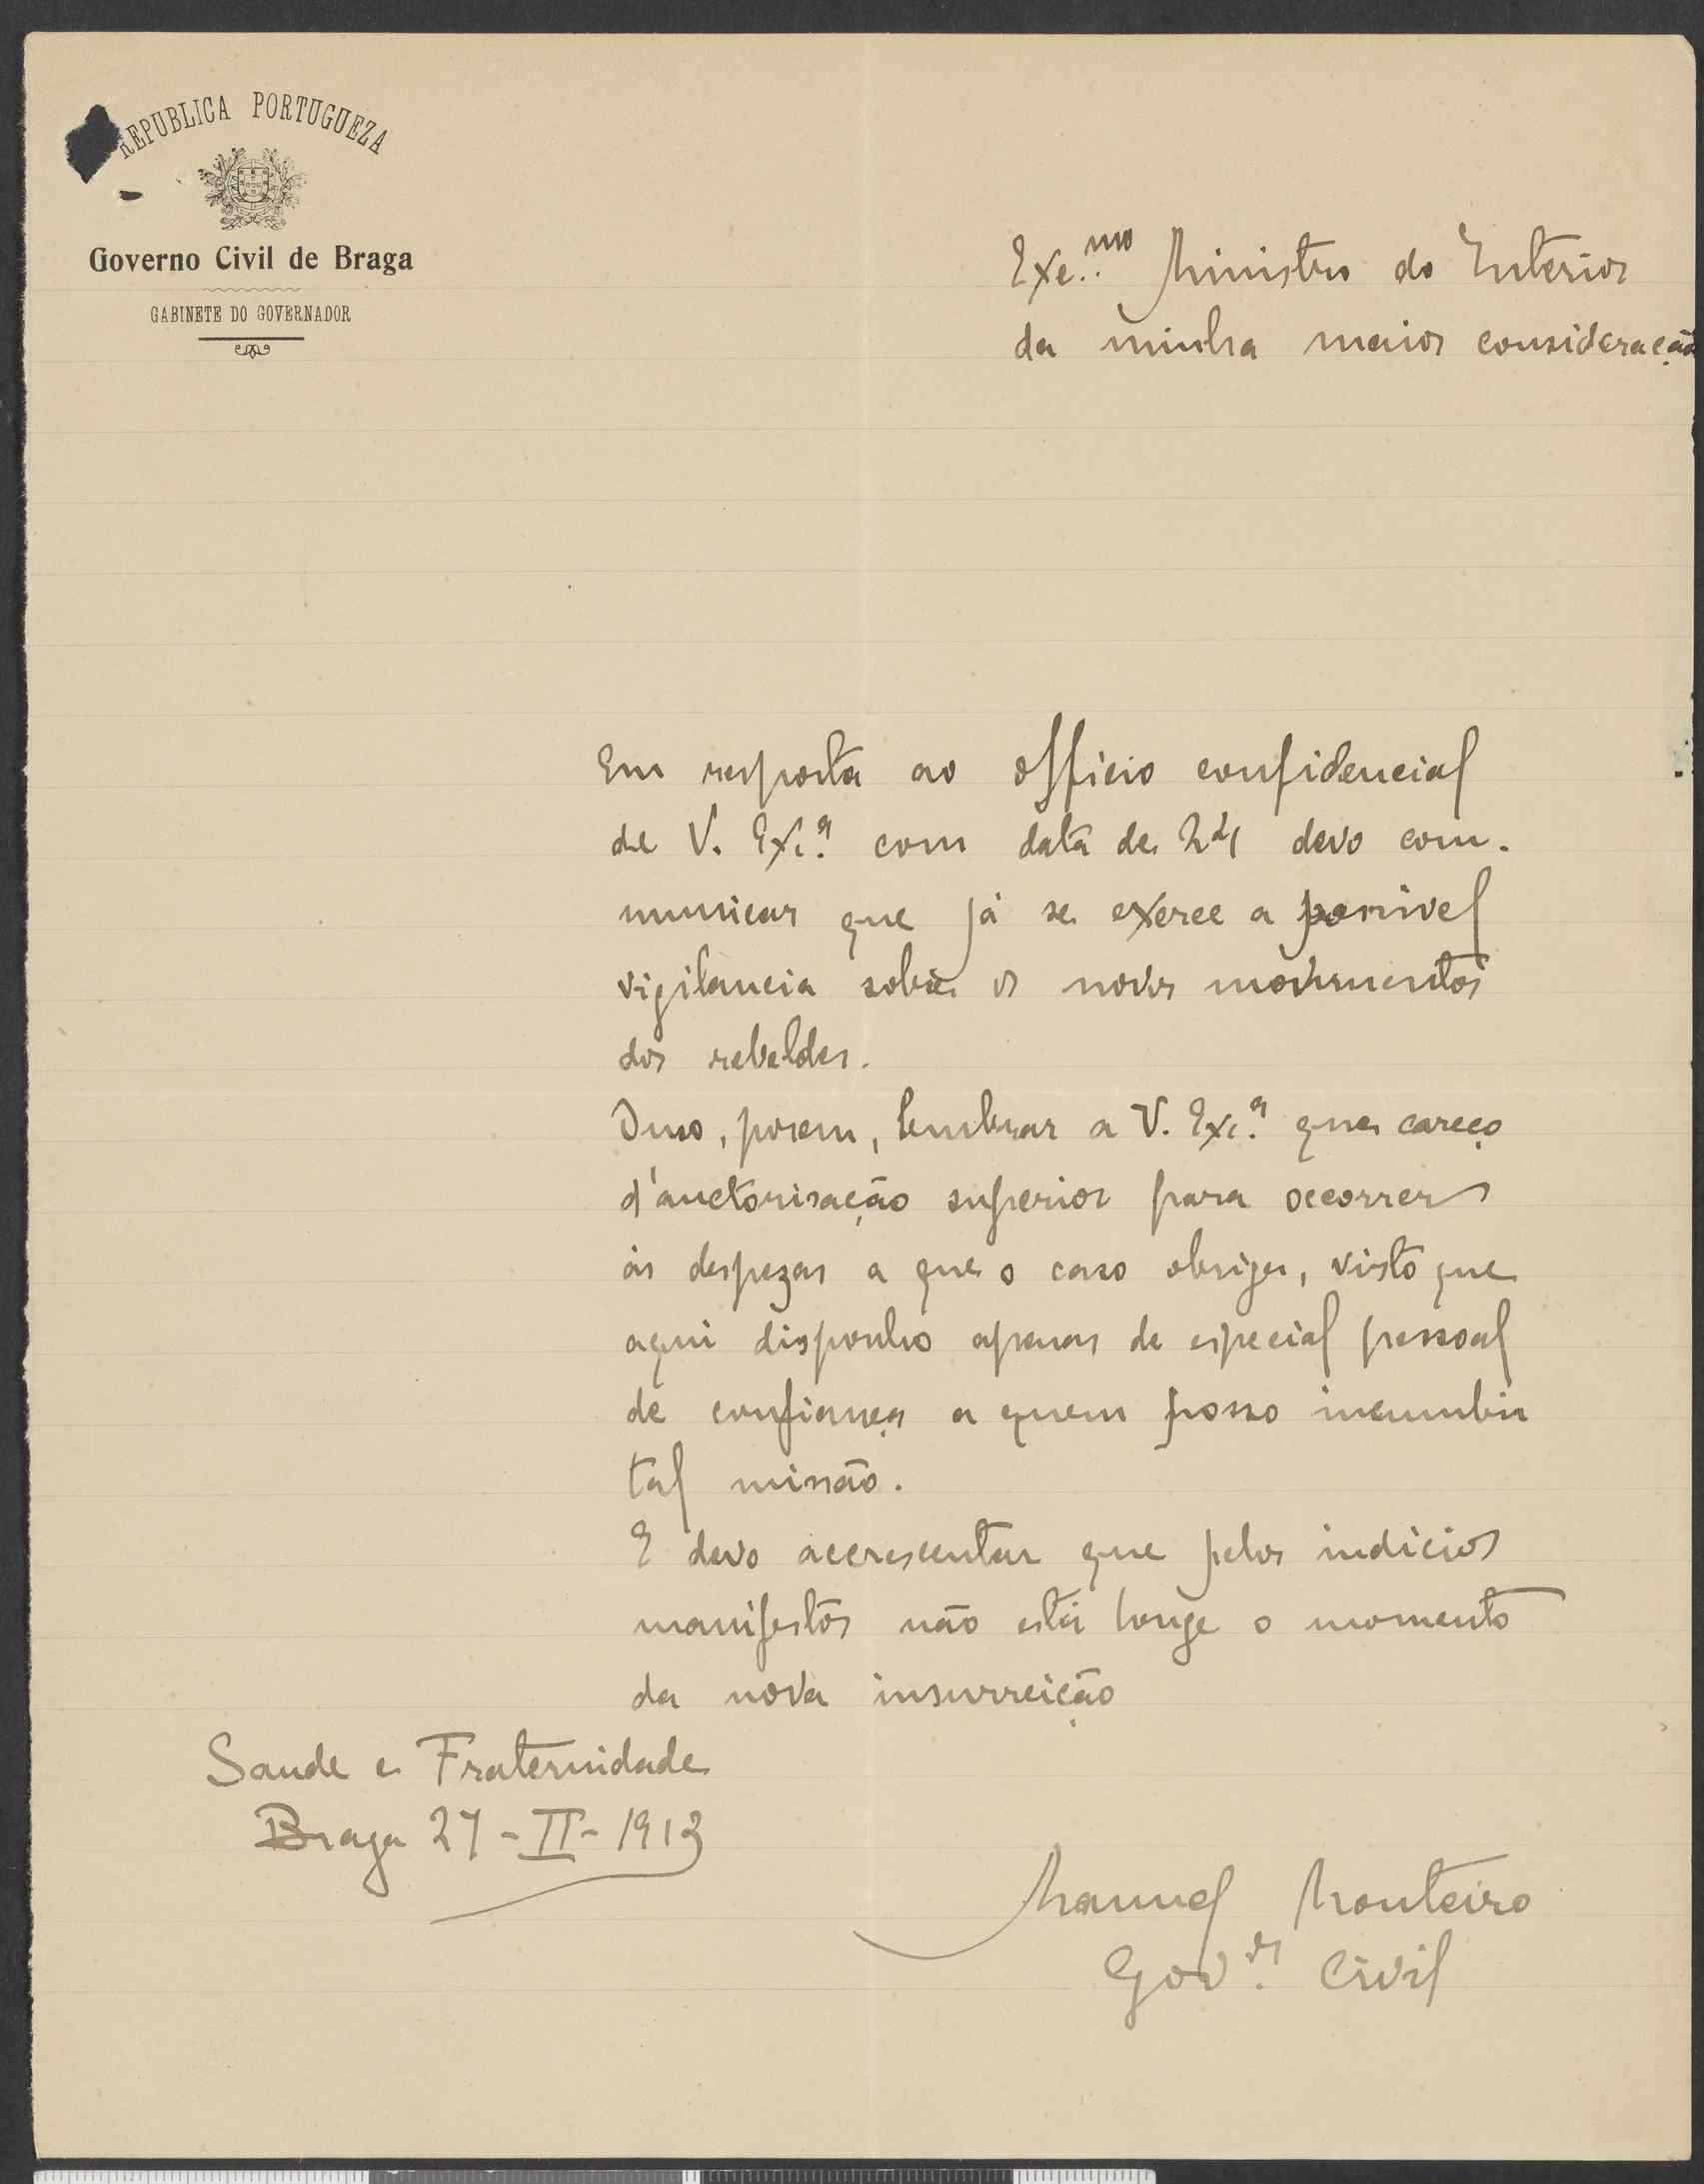 REPUBLICA PORTUGUEZA
Governo Civil de Braga
GABINETE DO GOVERNADOR
Exc.mo Ministro do Interior
da minha maior consideração
Em resposta ao officio confidencial
de V. Exc.a com data de 24 devo com-
municar que já se exerce a possivel
vigilancia sobre os novos movimentos
dos rebeldes.
Devo, porem, lembrar a V. Exc.a que careço
d'auctorisação superior para occorrer
ás despezas a que o caso obriga, visto que
aqui disponho apenas de especial pessoal
de confiança a quem posso incumbir
tal missão.
E devo accrescentar que pelos indicios
manifestos não está longe o momento
da nova insurreição
Saude e Fraternidade
Braga 27-II-1913
Manuel Monteiro
Gov.or Civil